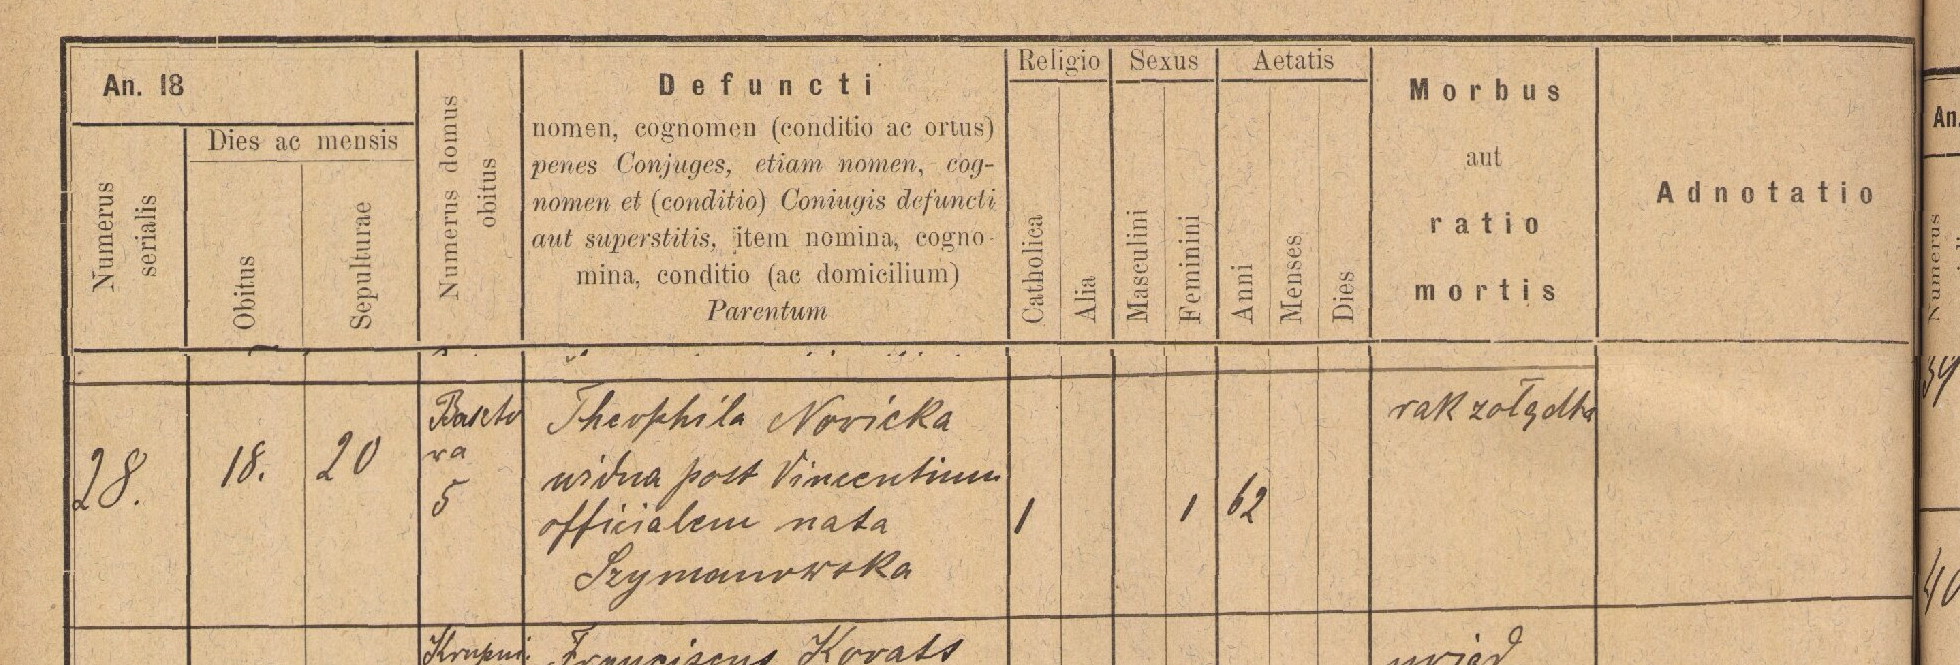 An. 18
Dies ac mensis
Numerus serialis
Obitus
Sepulturae
Numerus domus obitus
Defuncti
nomen, cognomen (conditio ac ortus)
penes Conjuges, etiam nomen, cog-
nomen et (conditio) Coniugis defuncti
aut superstitis, item nomina, cogno-
mina, conditio (ac domicilium)
Parentum
Religio
Catholica
Alia
Sexus
Masculini
Feminini
Aetatis
Anni
Menses
Dies
Morbus
aut
ratio
mortis
Adnotatio
An.
Numerus
39
28.
18.
20
ra
5
Theophila Novicka
widua post Vincentium
officialem nata
Szymanowska
1
1
62
rak zołądka
40
Krupni:
Franciscus Kovats